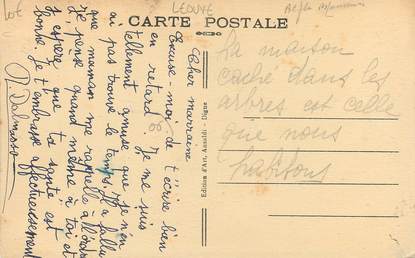 CARTE POSTALE
Cher marraine
Excuse-moi de t'écrire bien
en retard Je me suis
tellement amusé que je n'en
ai pas trouvé le temps. Il a fallu
que maman me rappelle à l'ordre
Je pense quand même à toi et
j'espère que ta santé est
bonne. Je t'embrasse affectueusement
P. Dalmasso
Edition d'Art, Annaldi - Digne
La maison
caché dans les
arbres est celle
que nous
habitons